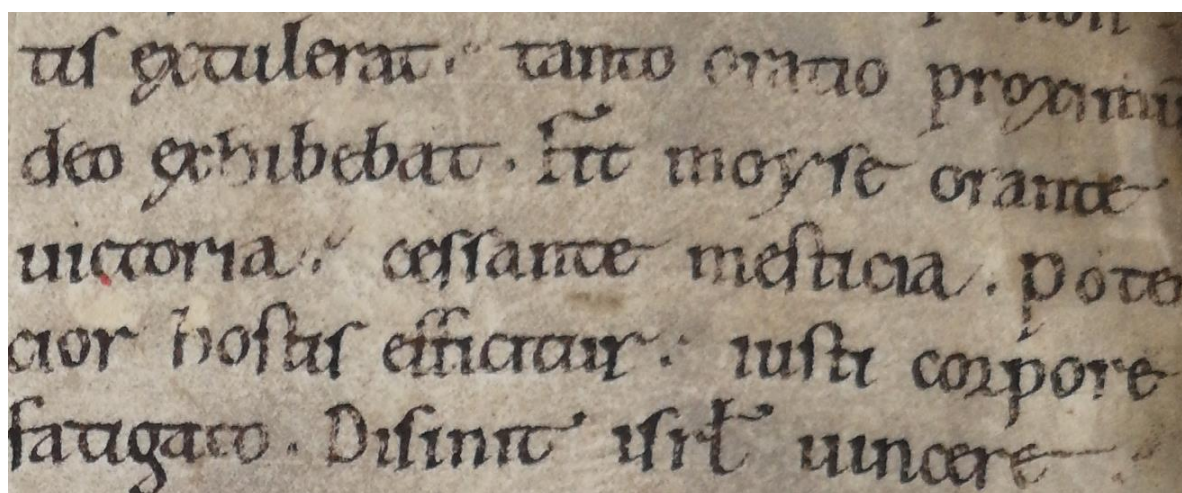 tis extulerat. tanto oratio proximū
deo exhibebat. Fit moyse orante
uictoria. cessante mesticia. Pote
cior hostis efficitur. iusti corpore
fatigato. Disinit isrł uincere